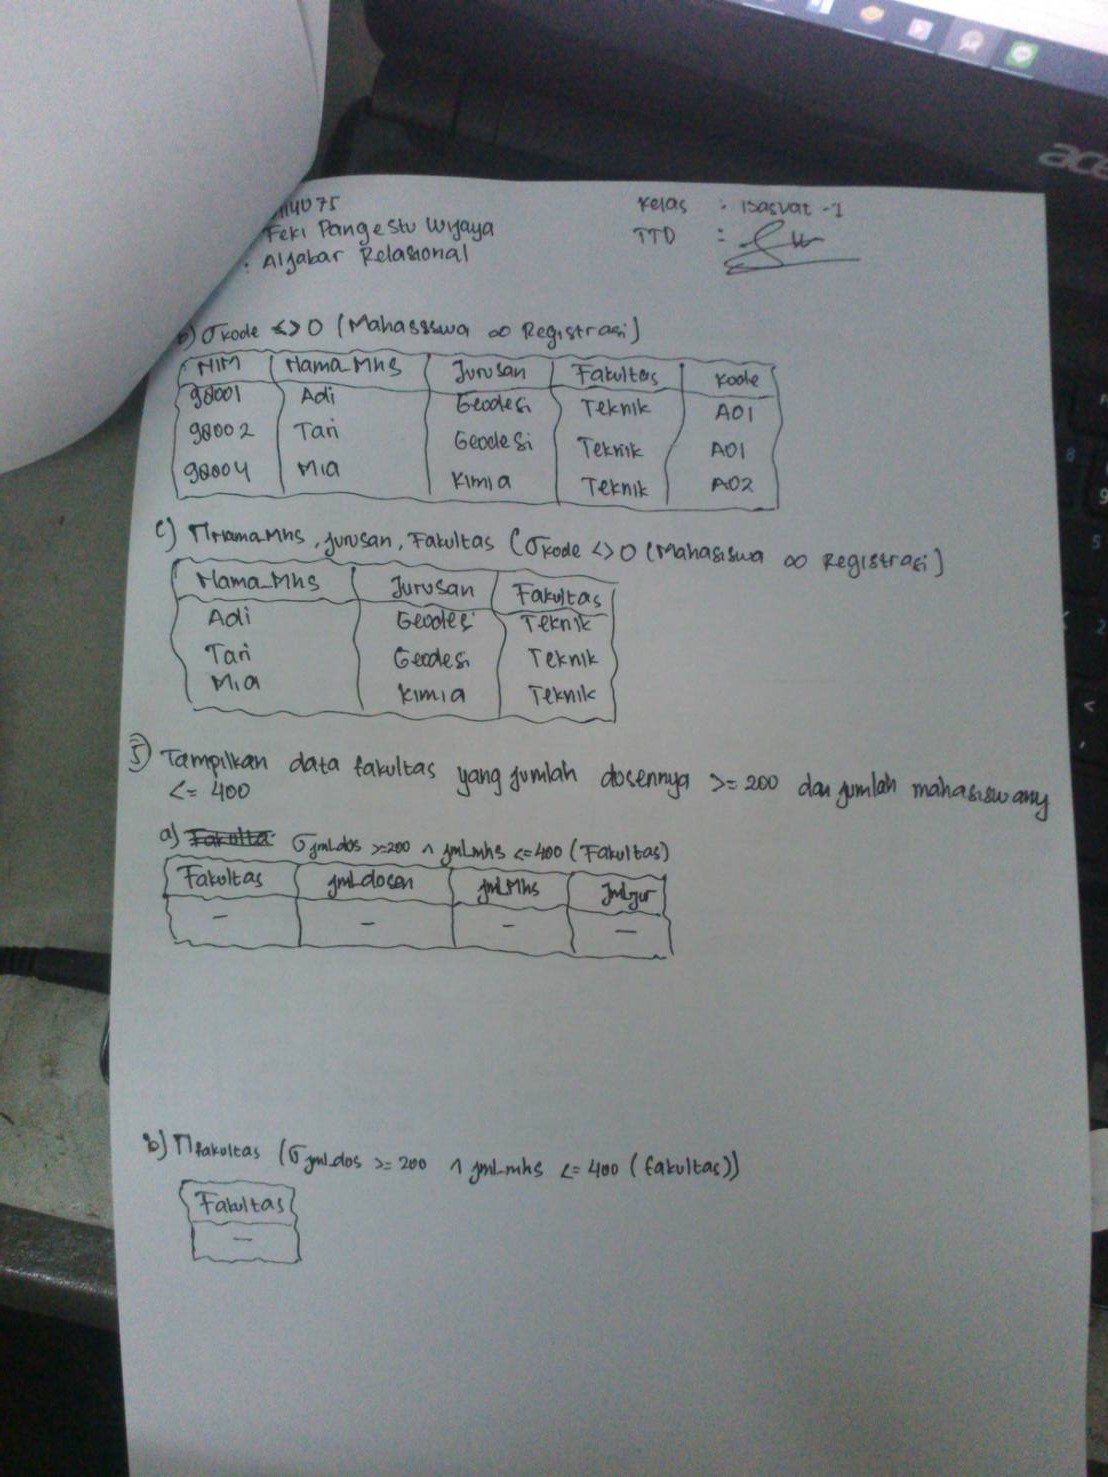 acer
114075
Feki Pangestu Wijaya
: Aljabar Relasional
Kelas : Basdat -1
TTD :
b) σkode <> 0 (Mahasiswa ∞ Registrasi)
NIM Nama_Mhs Jurusan Fakultas Kode
98001 Adi Geodesi Teknik A01
98002 Tari Geodesi Teknik A01
98004 Mia Kimia Teknik A02
c) ΠNama_Mhs, Jurusan, Fakultas (σkode <> 0 (Mahasiswa ∞ Registrasi)
Nama_Mhs Jurusan Fakultas
Adi Geodesi Teknik
Tari Geodesi Teknik
Mia Kimia Teknik
5) Tampilkan data fakultas yang jumlah dosennya >= 200 dan jumlah mahasiswany
<= 400
a) σ jml_dos >=200 ^ jml_mhs <=400 (Fakultas)
Fakultas jml_dosen jml_Mhs Jml_jur
- - - -
b) Πfakultas (σ jml_dos >= 200 ^ jml_mhs <= 400 (fakultas))
Fakultas
-